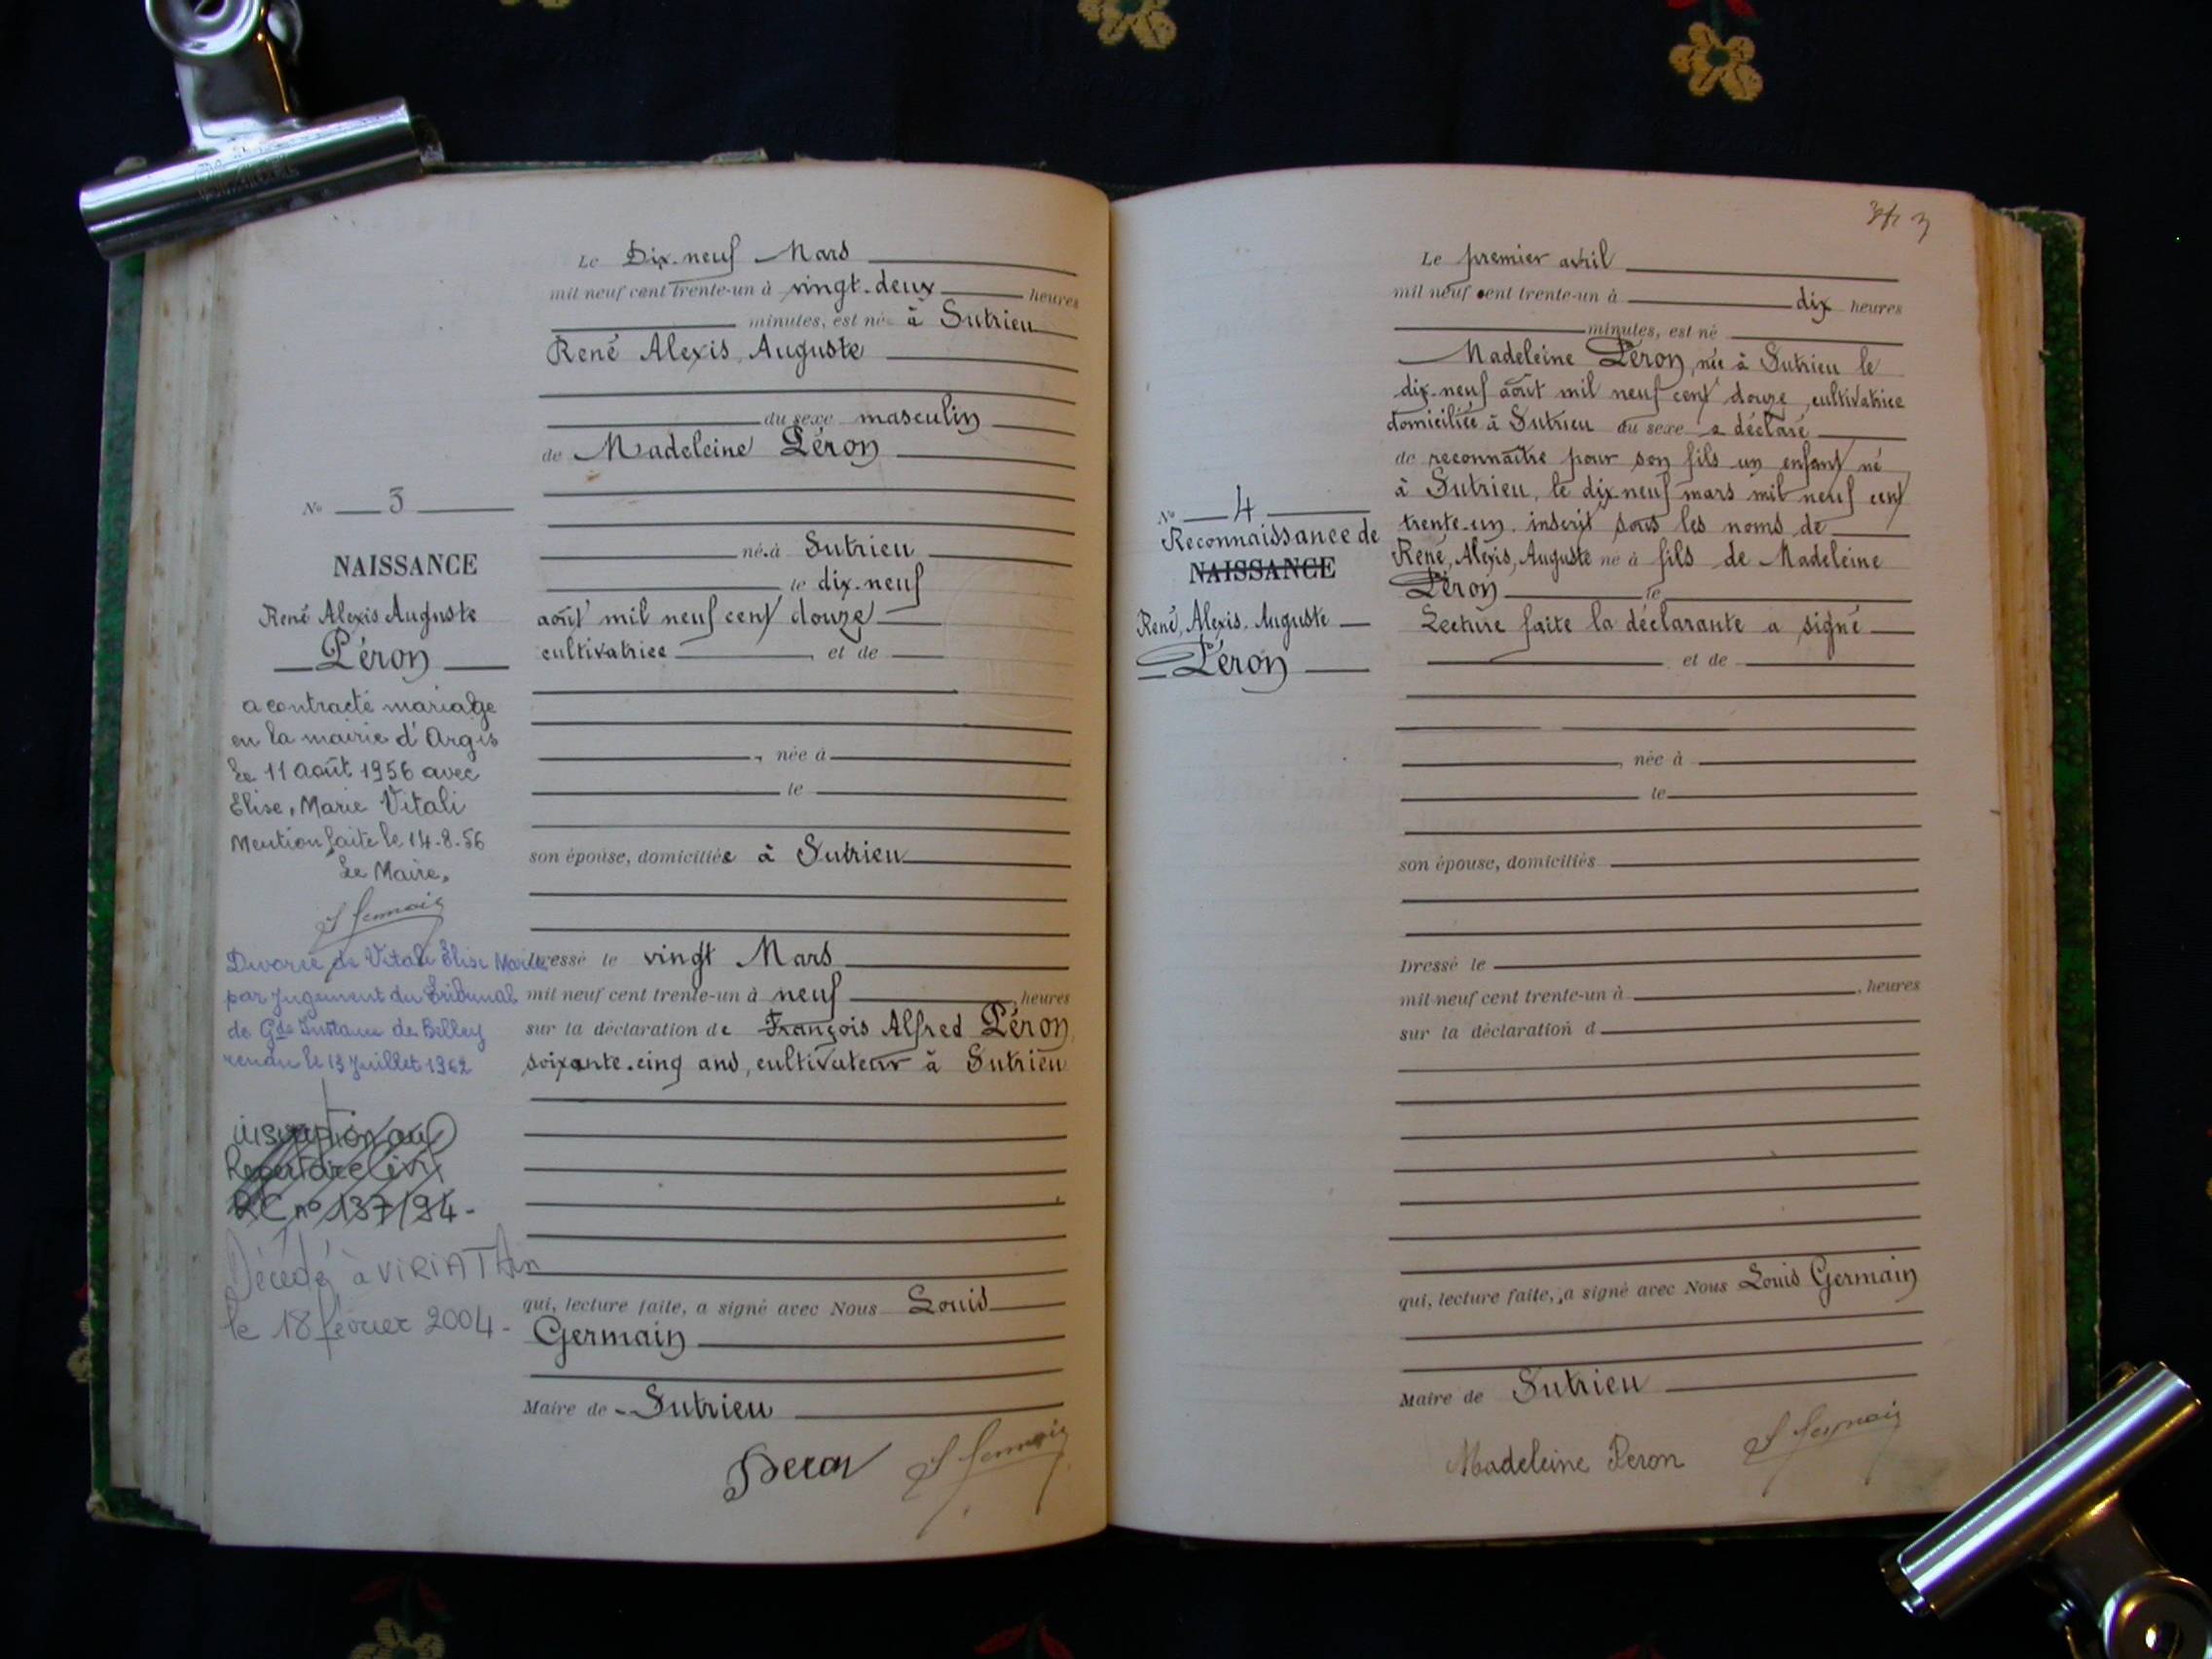 Le Dix-neuf Mars
mil neuf cent trente-un à vingt-deux heures
minutes, est né à Sutrieu
René Alexis Auguste
du sexe masculin
de Madeleine Péron
né à Sutrieu
le dix-neuf
août mil neuf cent douze
cultivatrice et de
, née à
le
son épouse, domiciliée à Sutrieu
Dressé le vingt Mars
mil neuf cent trente-un à neuf heures
sur la déclaration de François Alfred Péron,
soixante-cinq ans, cultivateur à Sutrieu
qui, lecture faite, a signé avec Nous Louis
Germain
Maire de Sutrieu
Peron
No 3
NAISSANCE
René Alexis Auguste
Péron
a contracté mariage
en la mairie d'Argis
le 11 août 1956 avec
Elise, Marie Vitali
Mention faite le 14-8-56
Le Maire,
Divorcé de Vitali Elise Marie
par jugement du Tribunal
de Gde Instance de Belley
rendu le 13 Juillet 1962
inscription au
Repertoire Civil
RC n° 137/94-
Décédé à VIRIAT Ain
le 18 février 2004-
Le premier avril
mil neuf cent trente-un à dix heures
minutes, est né
Madeleine Péron, née à Sutrieu le
dix-neuf août mil neuf cent douze, cultivatrice
domiciliée à Sutrieu du sexe a déclaré
de reconnaître pour son fils un enfant né
à Sutrieu, le dix neuf mars mil neuf cent
trente-un, inscrit sous les noms de
René, Alexis, Auguste né à fils de Madeleine
Péron le
Lecture faite la déclarante a signé
et de
, née à
le
son épouse, domiciliés
Dressé le
mil neuf cent trente-un à , heures
sur la déclaration d
qui, lecture faite, a signé avec Nous Louis Germain
Maire de Sutrieu
Madeleine Peron
No 4
Reconnaissance de
NAISSANCE
René, Alexis, Auguste
Péron